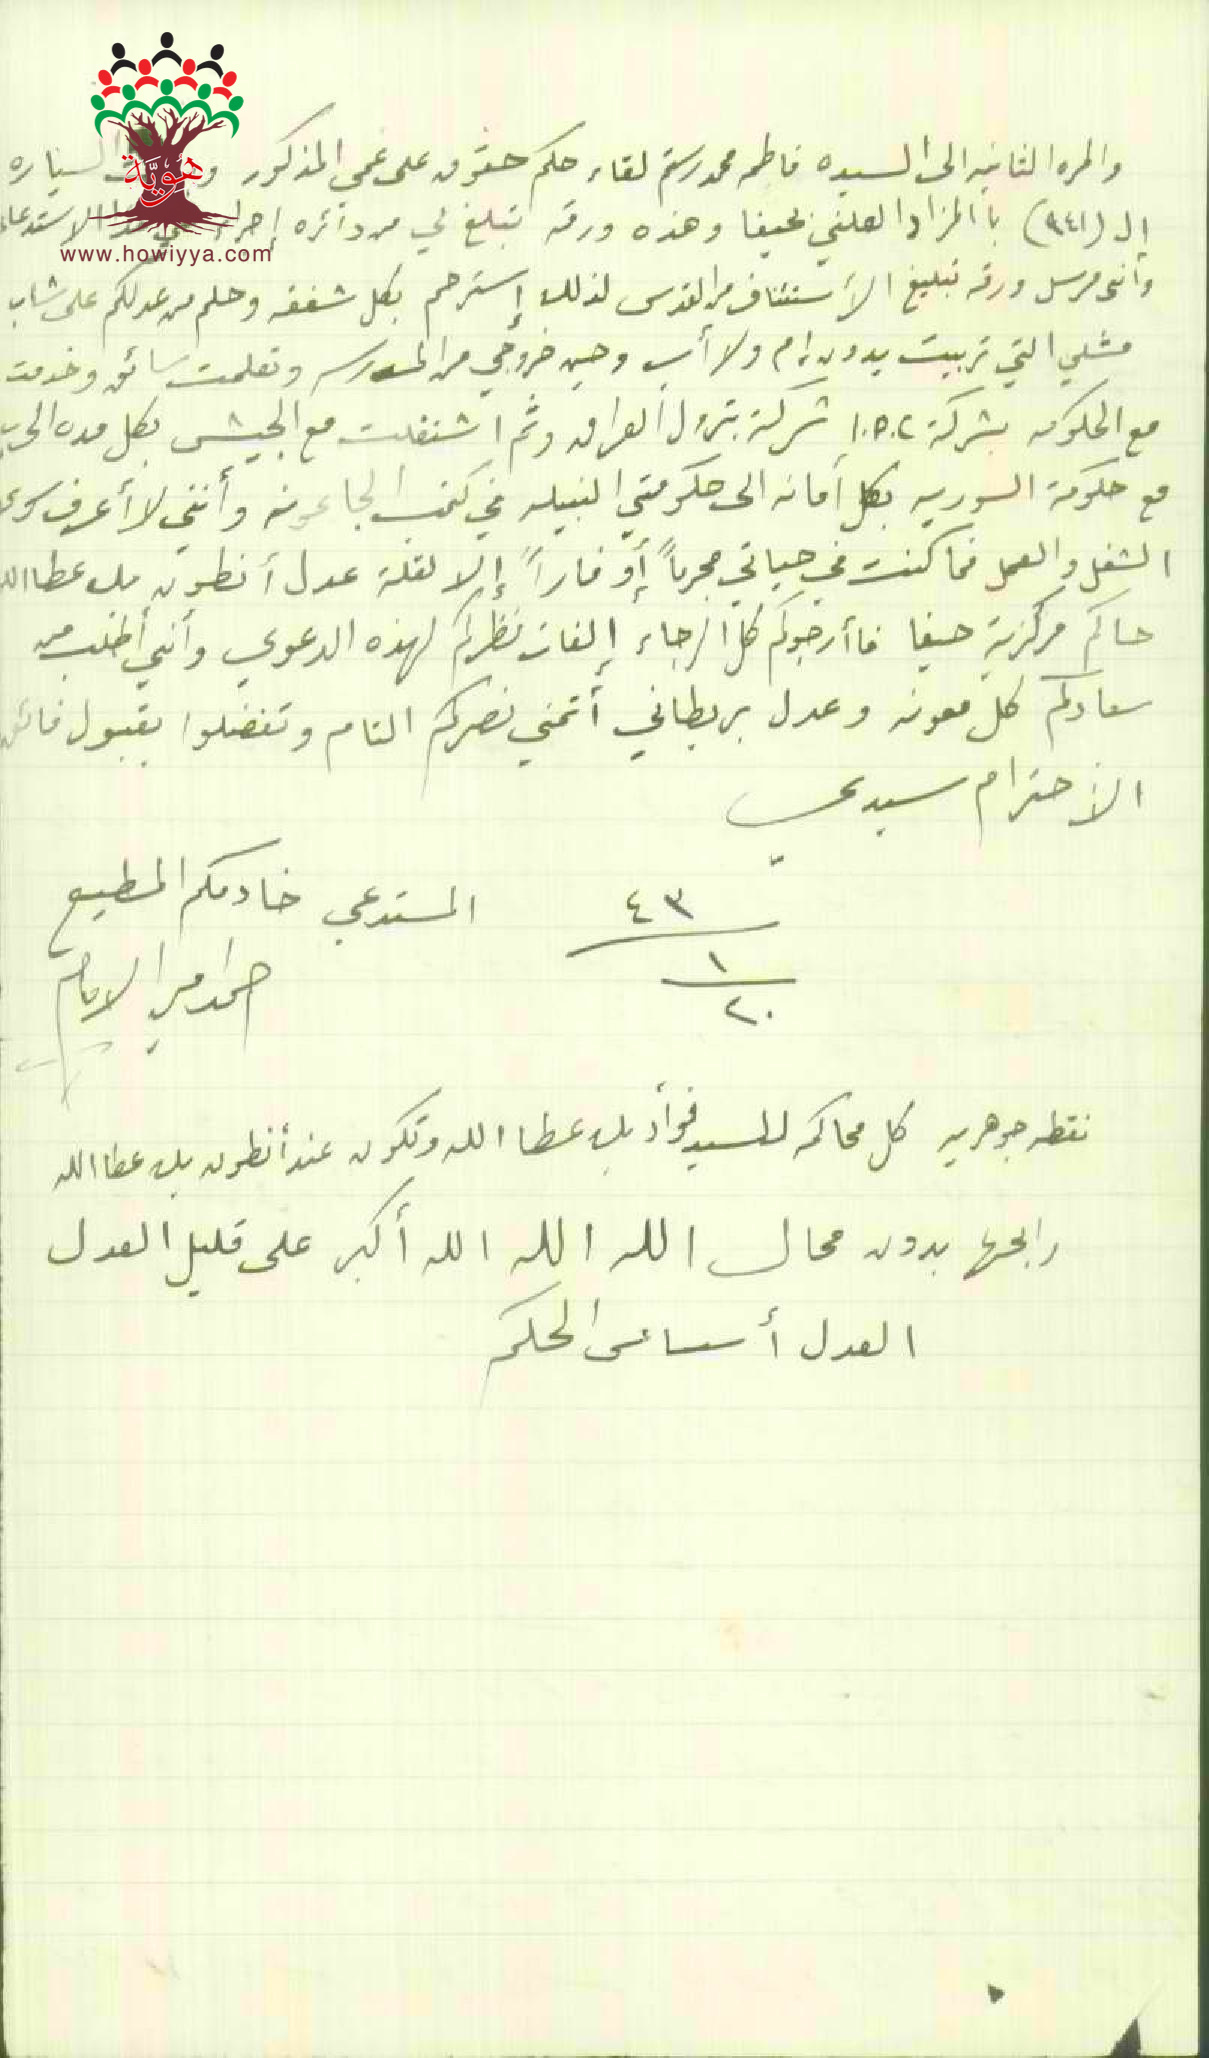 هوية
www.howiyya.com
والمره الثانيه الى السيده فاطمه محمد رستم لقاء حكم حقوق على عمي المذكور السياره
إل (٩٤١) باالمزاد العلني بحيفا وهذه ورقة تبليغ لي من دائره إجراء الاستدعاء
وأنني مرسل ورقة تبليغ الأستئناف من القدس لذلك إسترحم بكل شفقه وحلم من عدلكم على شاب
مثلي التي تربيت بدون إم ولا أب وحين خروجي من المدرسه وتعلمت سائق وخدمت
مع الحكومه بشركة شركة بترول العراق وثم اشتغلت مع الجيش بكل مده الحرب
مع حكومة السوريه بكل أمانه الى حكومتي النبيله في كتب الجاعونه وأنني لا أعرف سوى
الشغل والعمل فما كنت في حياتي مجرماً أو فاراً إلا لقلة عدل أنطون بك عطاالله
حاكم مركزية حيفا فاأرجوكم كل الرجاء إلفات نظركم لهذه الدعوى وأنني أطلب من
سعادكم كل معونه وعدل بريطاني أتمنى نصركم التام وتفضلوا بقبول فائق
الأحترام سيدي
المستدعي خادمكم المطيع
٤٣
١
٢٠
نقطه جوهريه كل محاكمه للسيد فؤاد بك عطا الله وتكون عند أنطون بك عطا الله
رابحها بدون محال الله الله الله أكبر على قليل العدل
العدل أساس الحكم